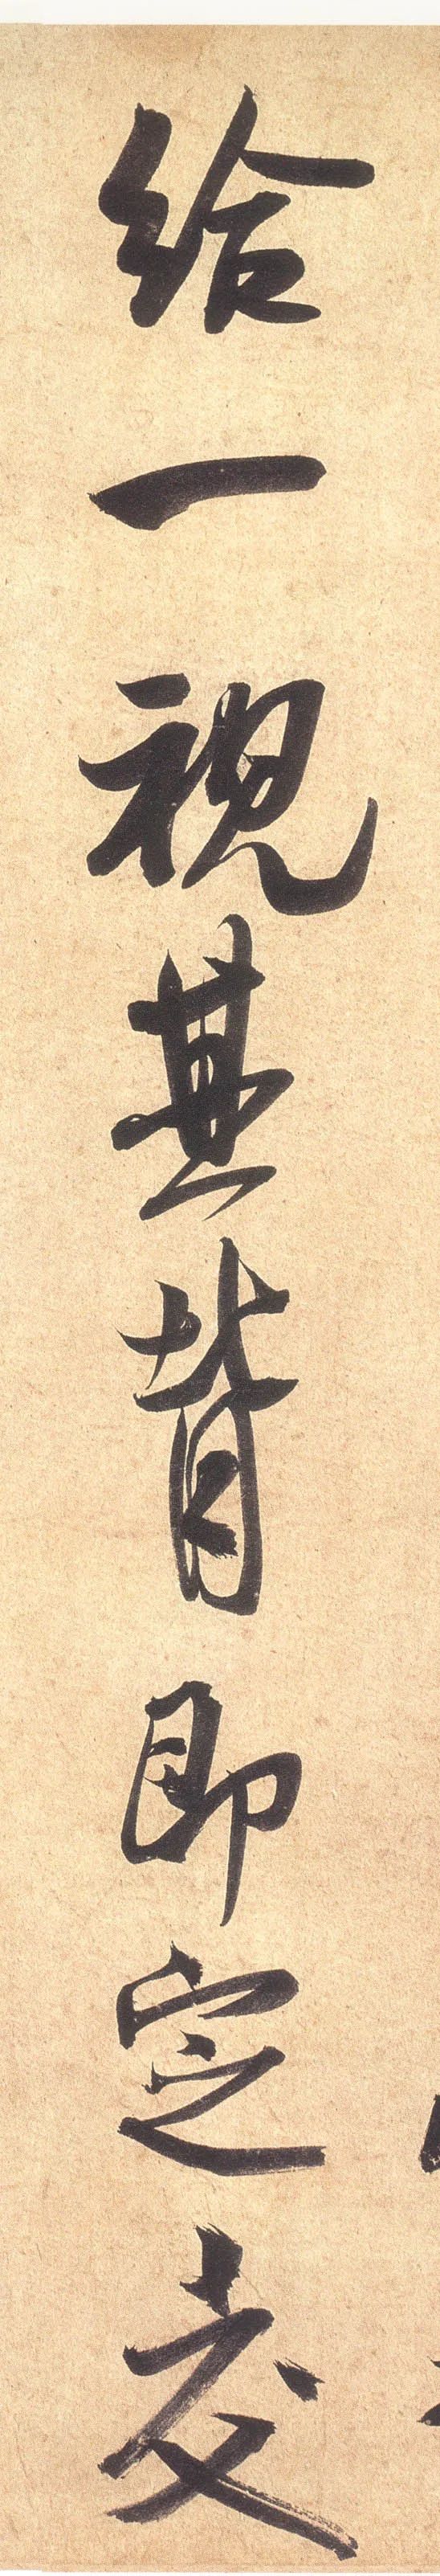 給一視其背即定交